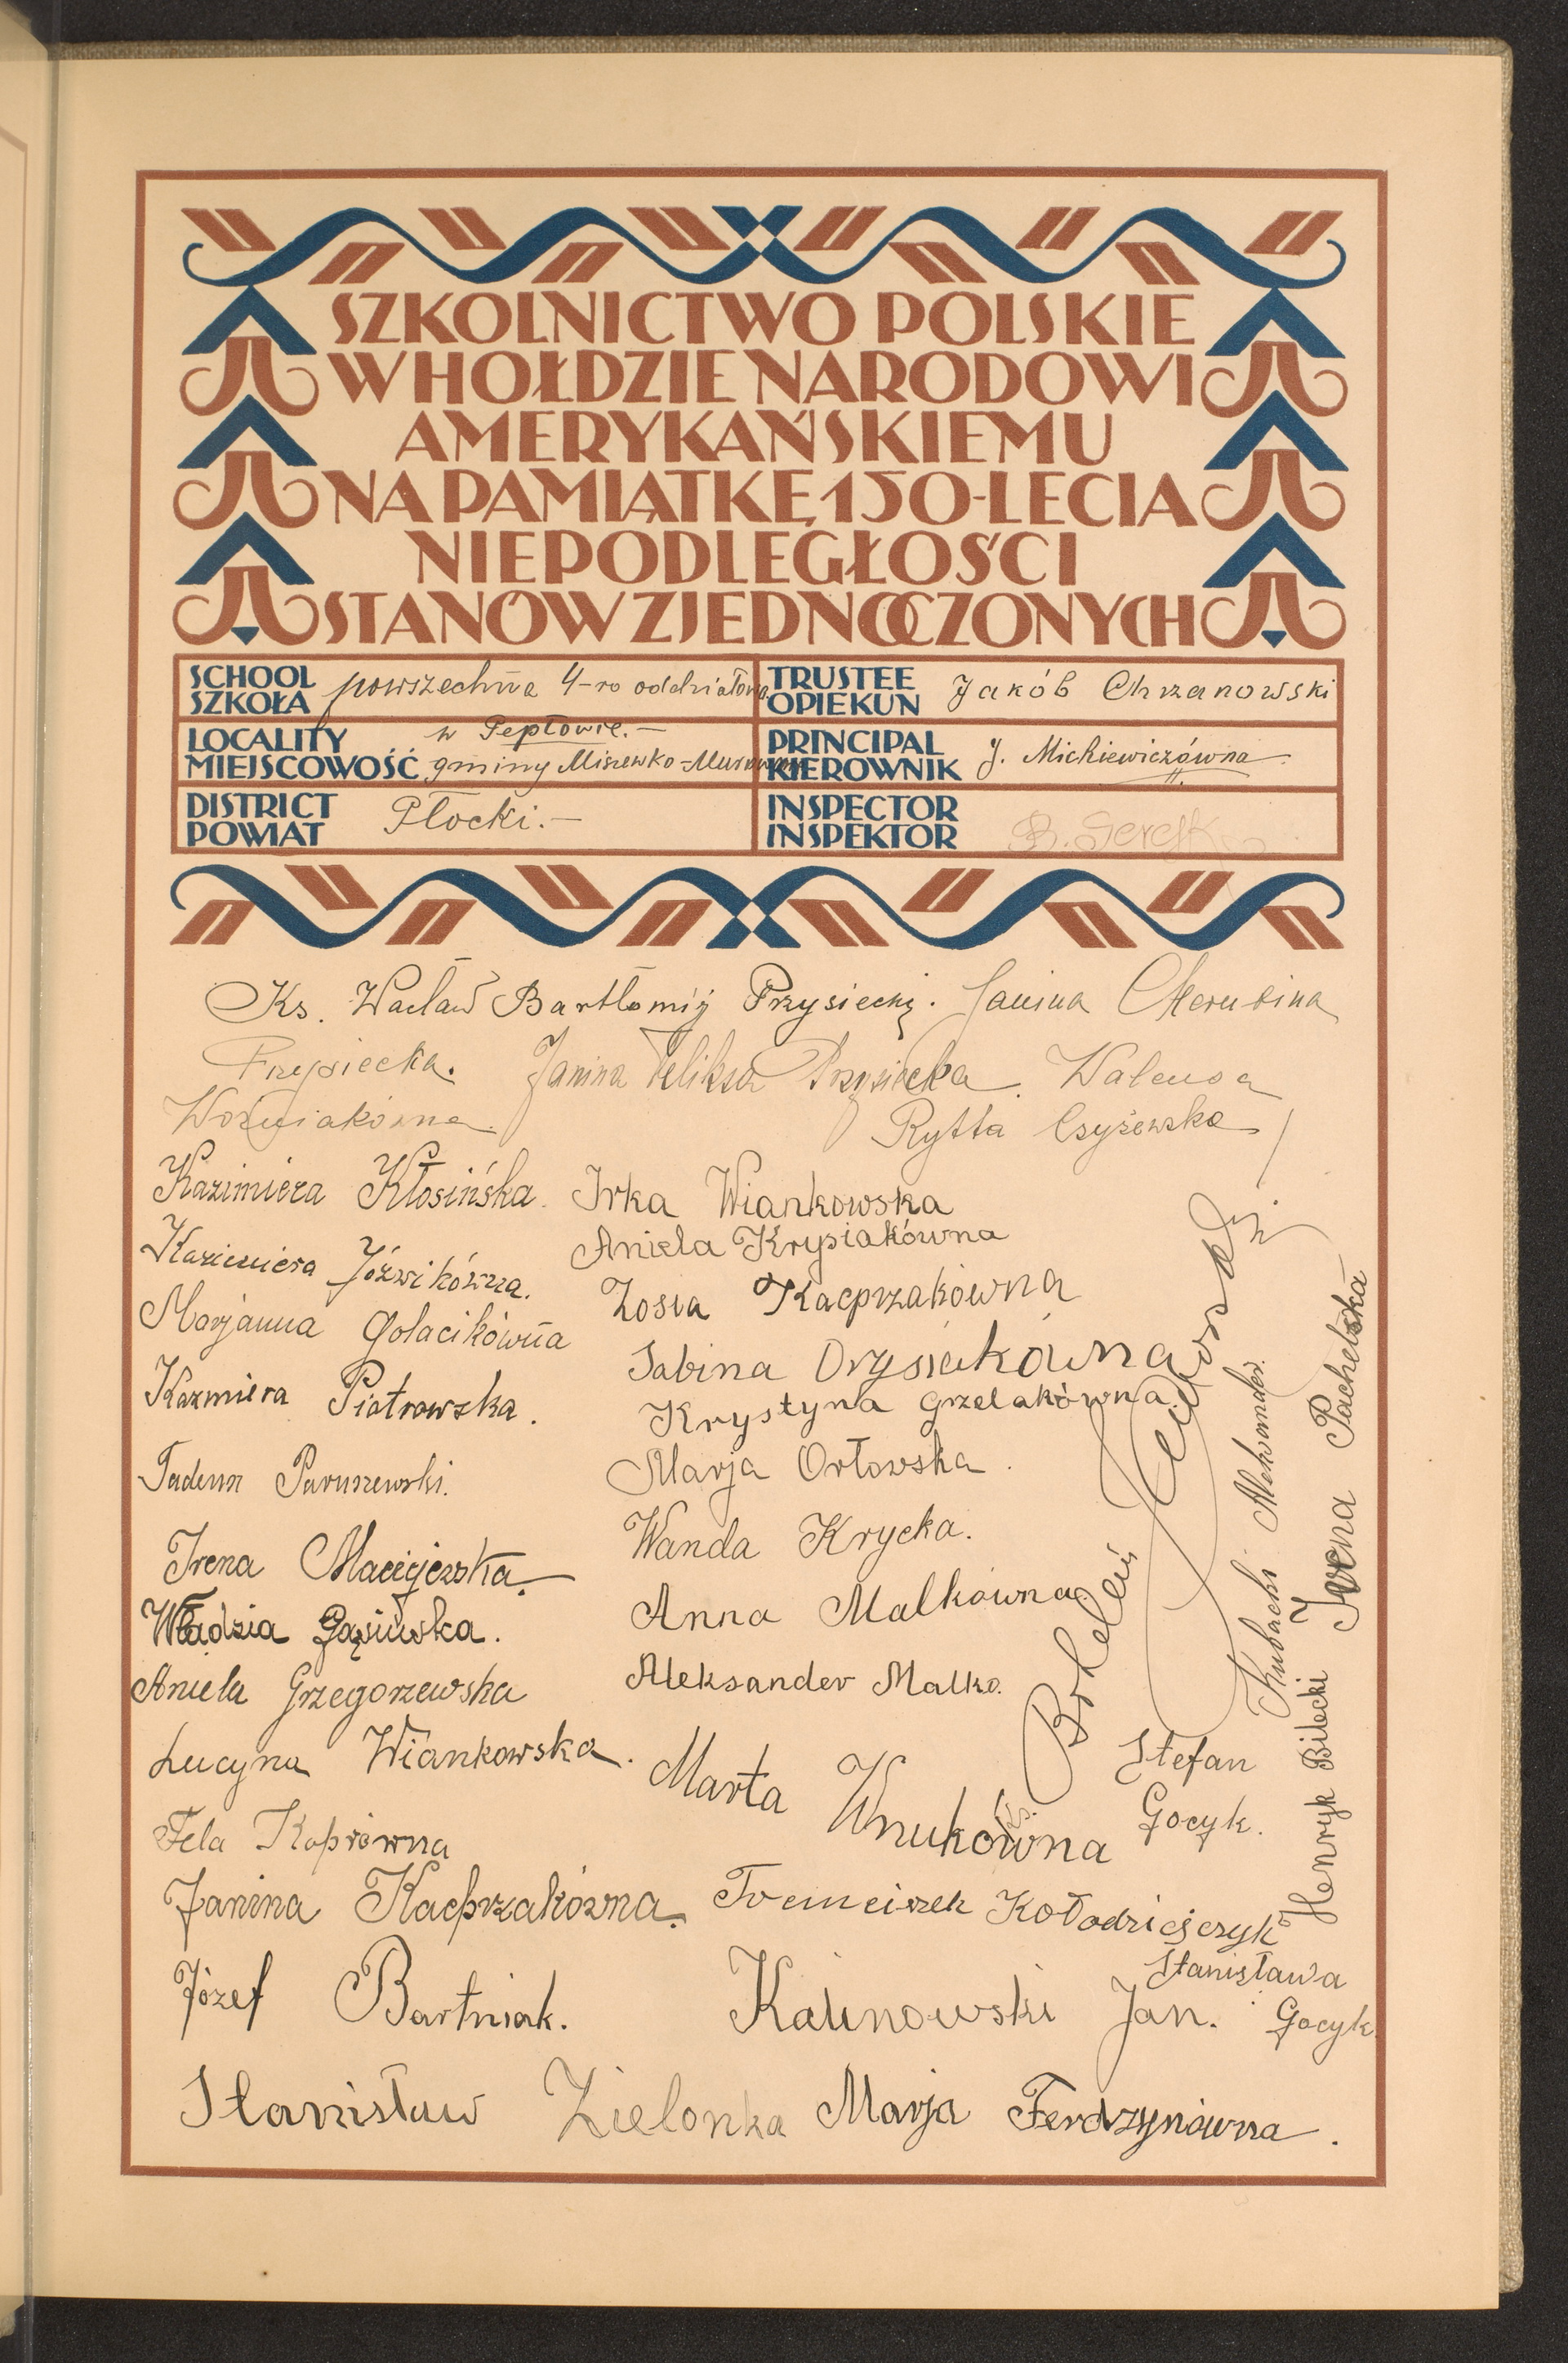 SZKOLNICTWO POLSKIE
W HOŁDZIE NARODOWI
AMERYKAŃSKIEMU
NA PAMIĄTKĘ 150-LECIA
NIEPODLEGŁOŚCI
STANÓW ZJEDNOCZONYCH
SCHOOL
SZKOŁA powszechna 4-ro oddziałowa
TRUSTEE
OPIEKUN Jakób Chrzanowski
LOCALITY w Pepłowie.-
MIEJSCOWOŚĆ gminy Miszewko-Murowane
PRINCIPAL
KIEROWNIK J. Mickiewiczówna
DISTRICT
POWIAT Płocki.-
INSPECTOR
INSPEKTOR B.
Ks. Wacław Bartłomiej Przysiecki. Janina Cherubina
Przysiecka. Janina Feliksa Przysiecka. Walensa
Woźniakówna. Rytta Czyżewska
Kazimiera Kłosińska. Irka Wiankowska
Aniela Krysiakówna
Kazimiera Jóźwikówna. Zosia Kacprzakówna
Marjanna Golacikówna
Sabina Orysiakówna
Kazmiera Piotrowska. Krystyna Grzelakówna.
Tadeusz Paruszewski. Marja Orłowska.
Irena Maciejewska. Wanda Krycka.
Władzia Gąsiwska. Anna Malkówna.
Aniela Grzegorzewska Aleksander Malko.
Lucyna Wiankowska. Marta Wnukówna
Stefan
Gocyk.
Fela Koprówna
Janina Kacprzakówna. Franciszek Kołodziejczyk
Józef Bartniak. Kalinowski Jan.
Stanisława
Gocyk
Stanisław Zielonka Marja Ferdzynówna.
Bolesław
Kubacki Aleksander.
Henryk Bilecki
Irena Pachelska